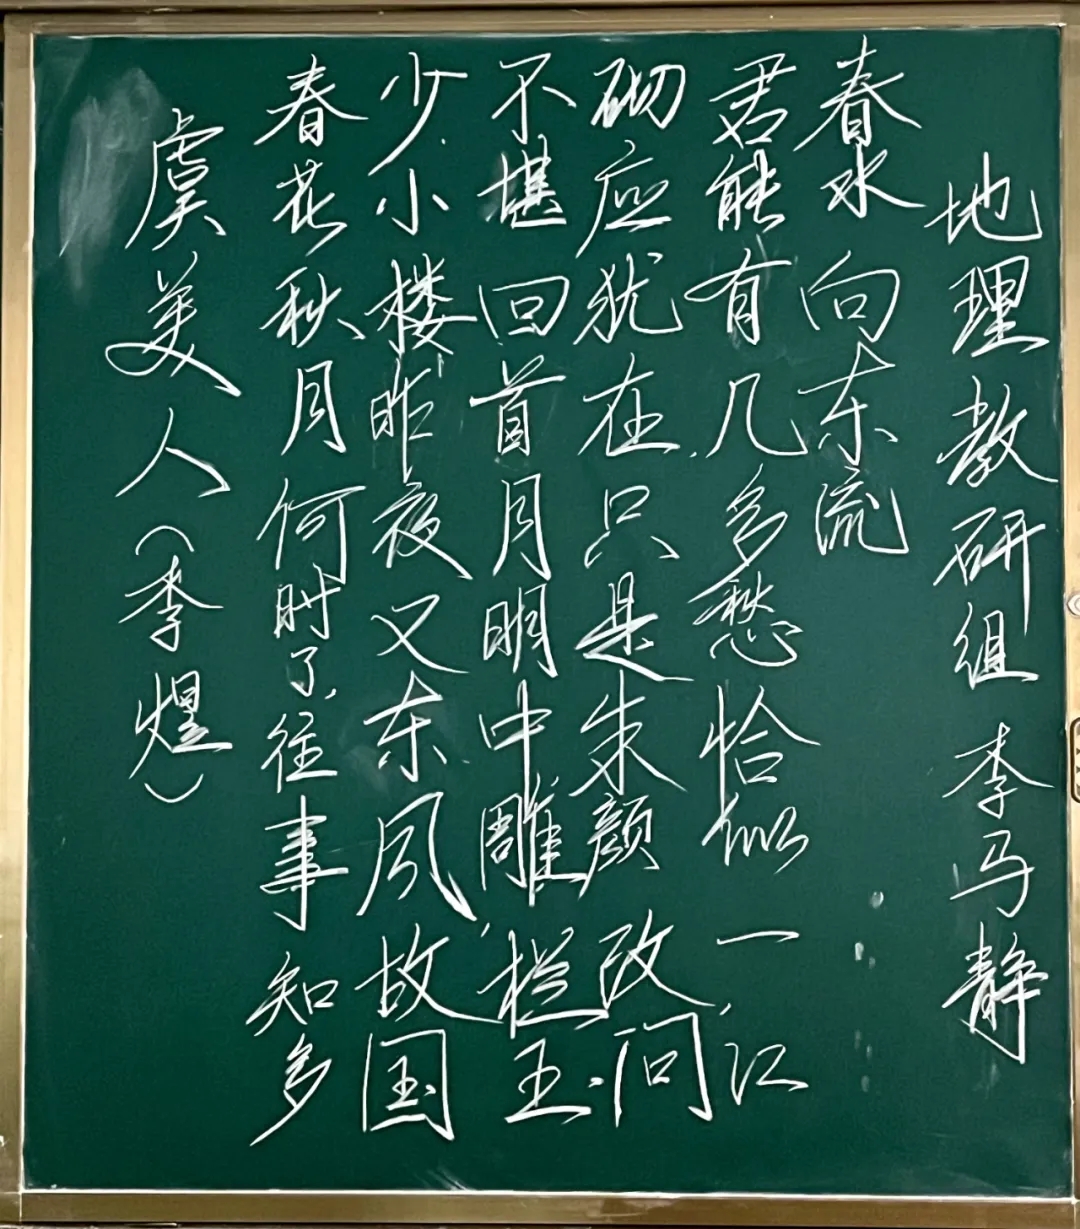 虞美人（李煜）
春花秋月何时了往事知多
少小楼昨夜又东风故国
不堪回首月明中雕栏玉
砌应犹在只是朱颜改问
君能有几多愁恰似一江
春水向东流
地理教研组 李马静